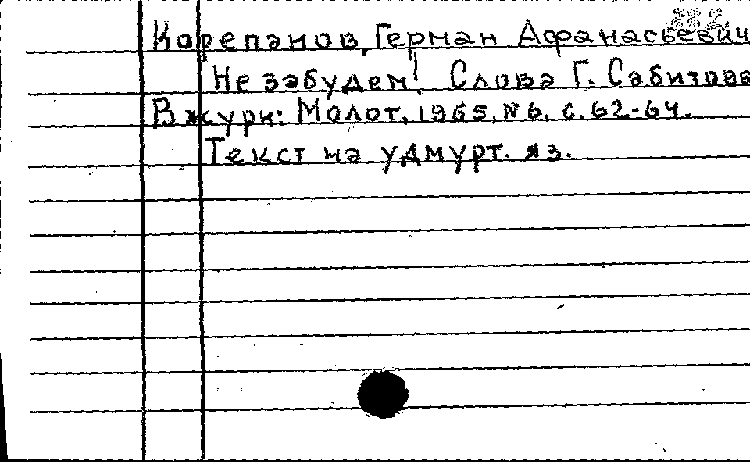 Корепанов, Герман Афанасьевич
Не забудем! Слова Г. Сабитова
В журн: Молот, 1965, №6, с. 62-64.
Текст на удмурт. яз.